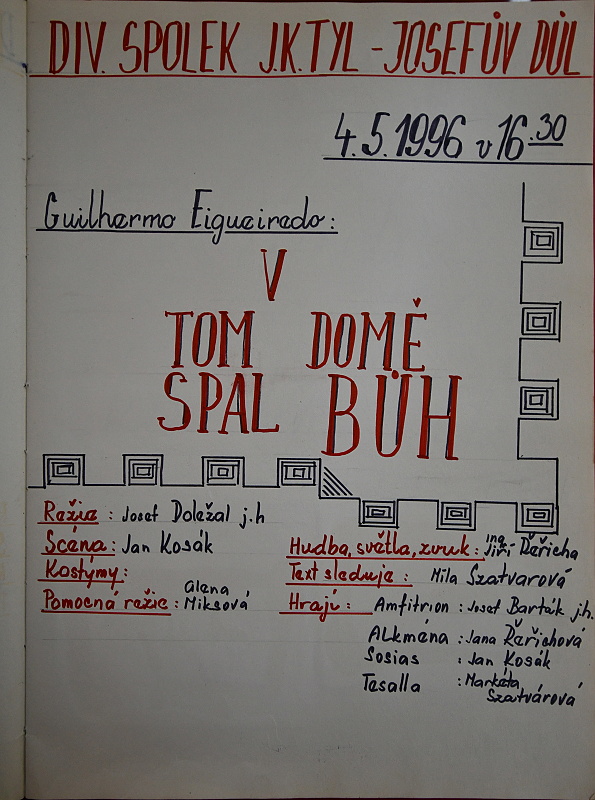 DIV. SPOLEK J.K.TYL - JOSEFŮV DŮL
4.5.1996 v 16.30
Guilhermo Eigueiredo:
V
TOM DOMĚ
SPAL BŮH
Režie: Josef Doležal j.h
Scéna: Jan Kosák
Kostýmy:
Pomocná režie: Alena Miksová
Hudba, světla, zvuk: ing Jiří Řeřicha
Text sleduje: Mila Szatvarová
Hrají: Amfitrion: Josef Barták j.h.
Alkména: Jana Řeřichová
Sosias: Jan Kosák
Tesalla: Markéta
Szatvárová